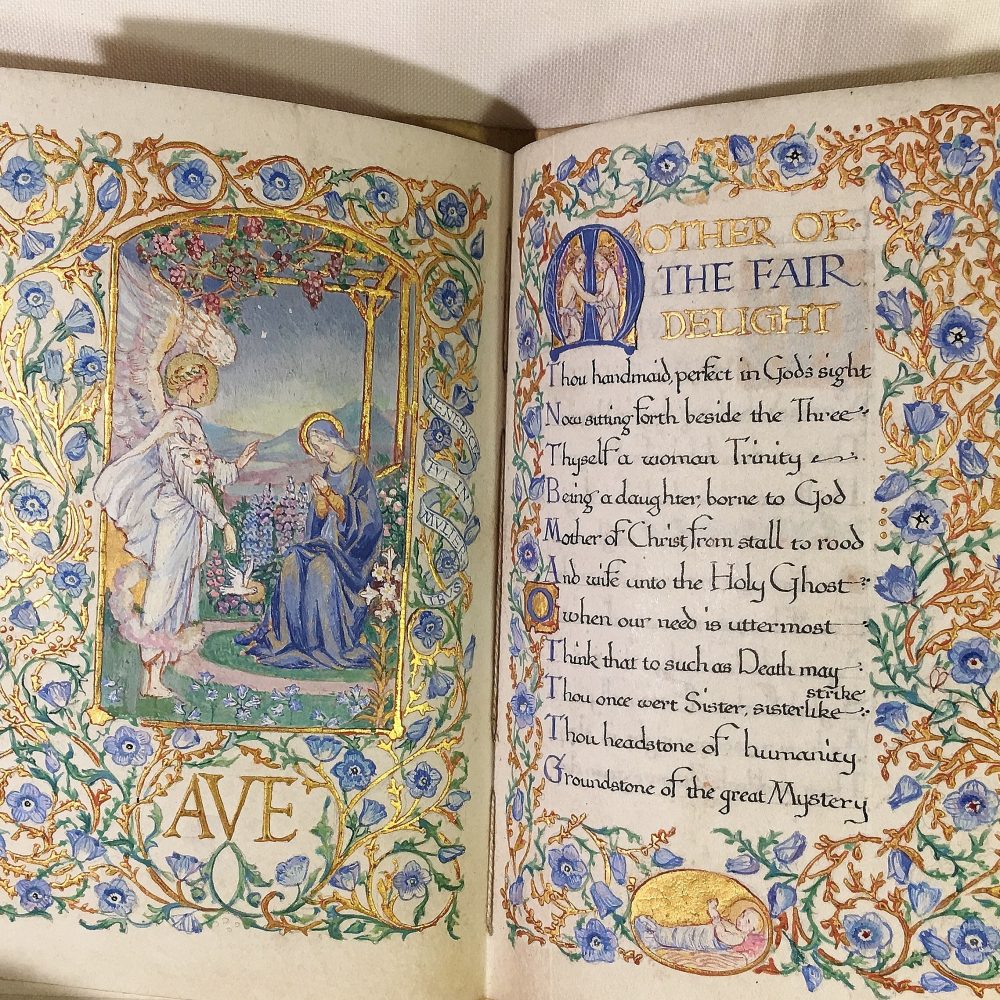 BENEDIC
IN
MVLIER
IBVS
AVE
MOTHER OF
THE FAIR
DELIGHT
Thou handmaid, perfect in God's sight
Now sitting forth beside the Three
Thyself a woman Trinity
Being a daughter, borne to God
Mother of Christ, from stall to rood
And wife unto the Holy Ghost
O when our need is uttermost
Think that to such as Death may
strike
Thou once wert Sister, sisterlike
Thou headstone of humanity
Groundstone of the great Mystery